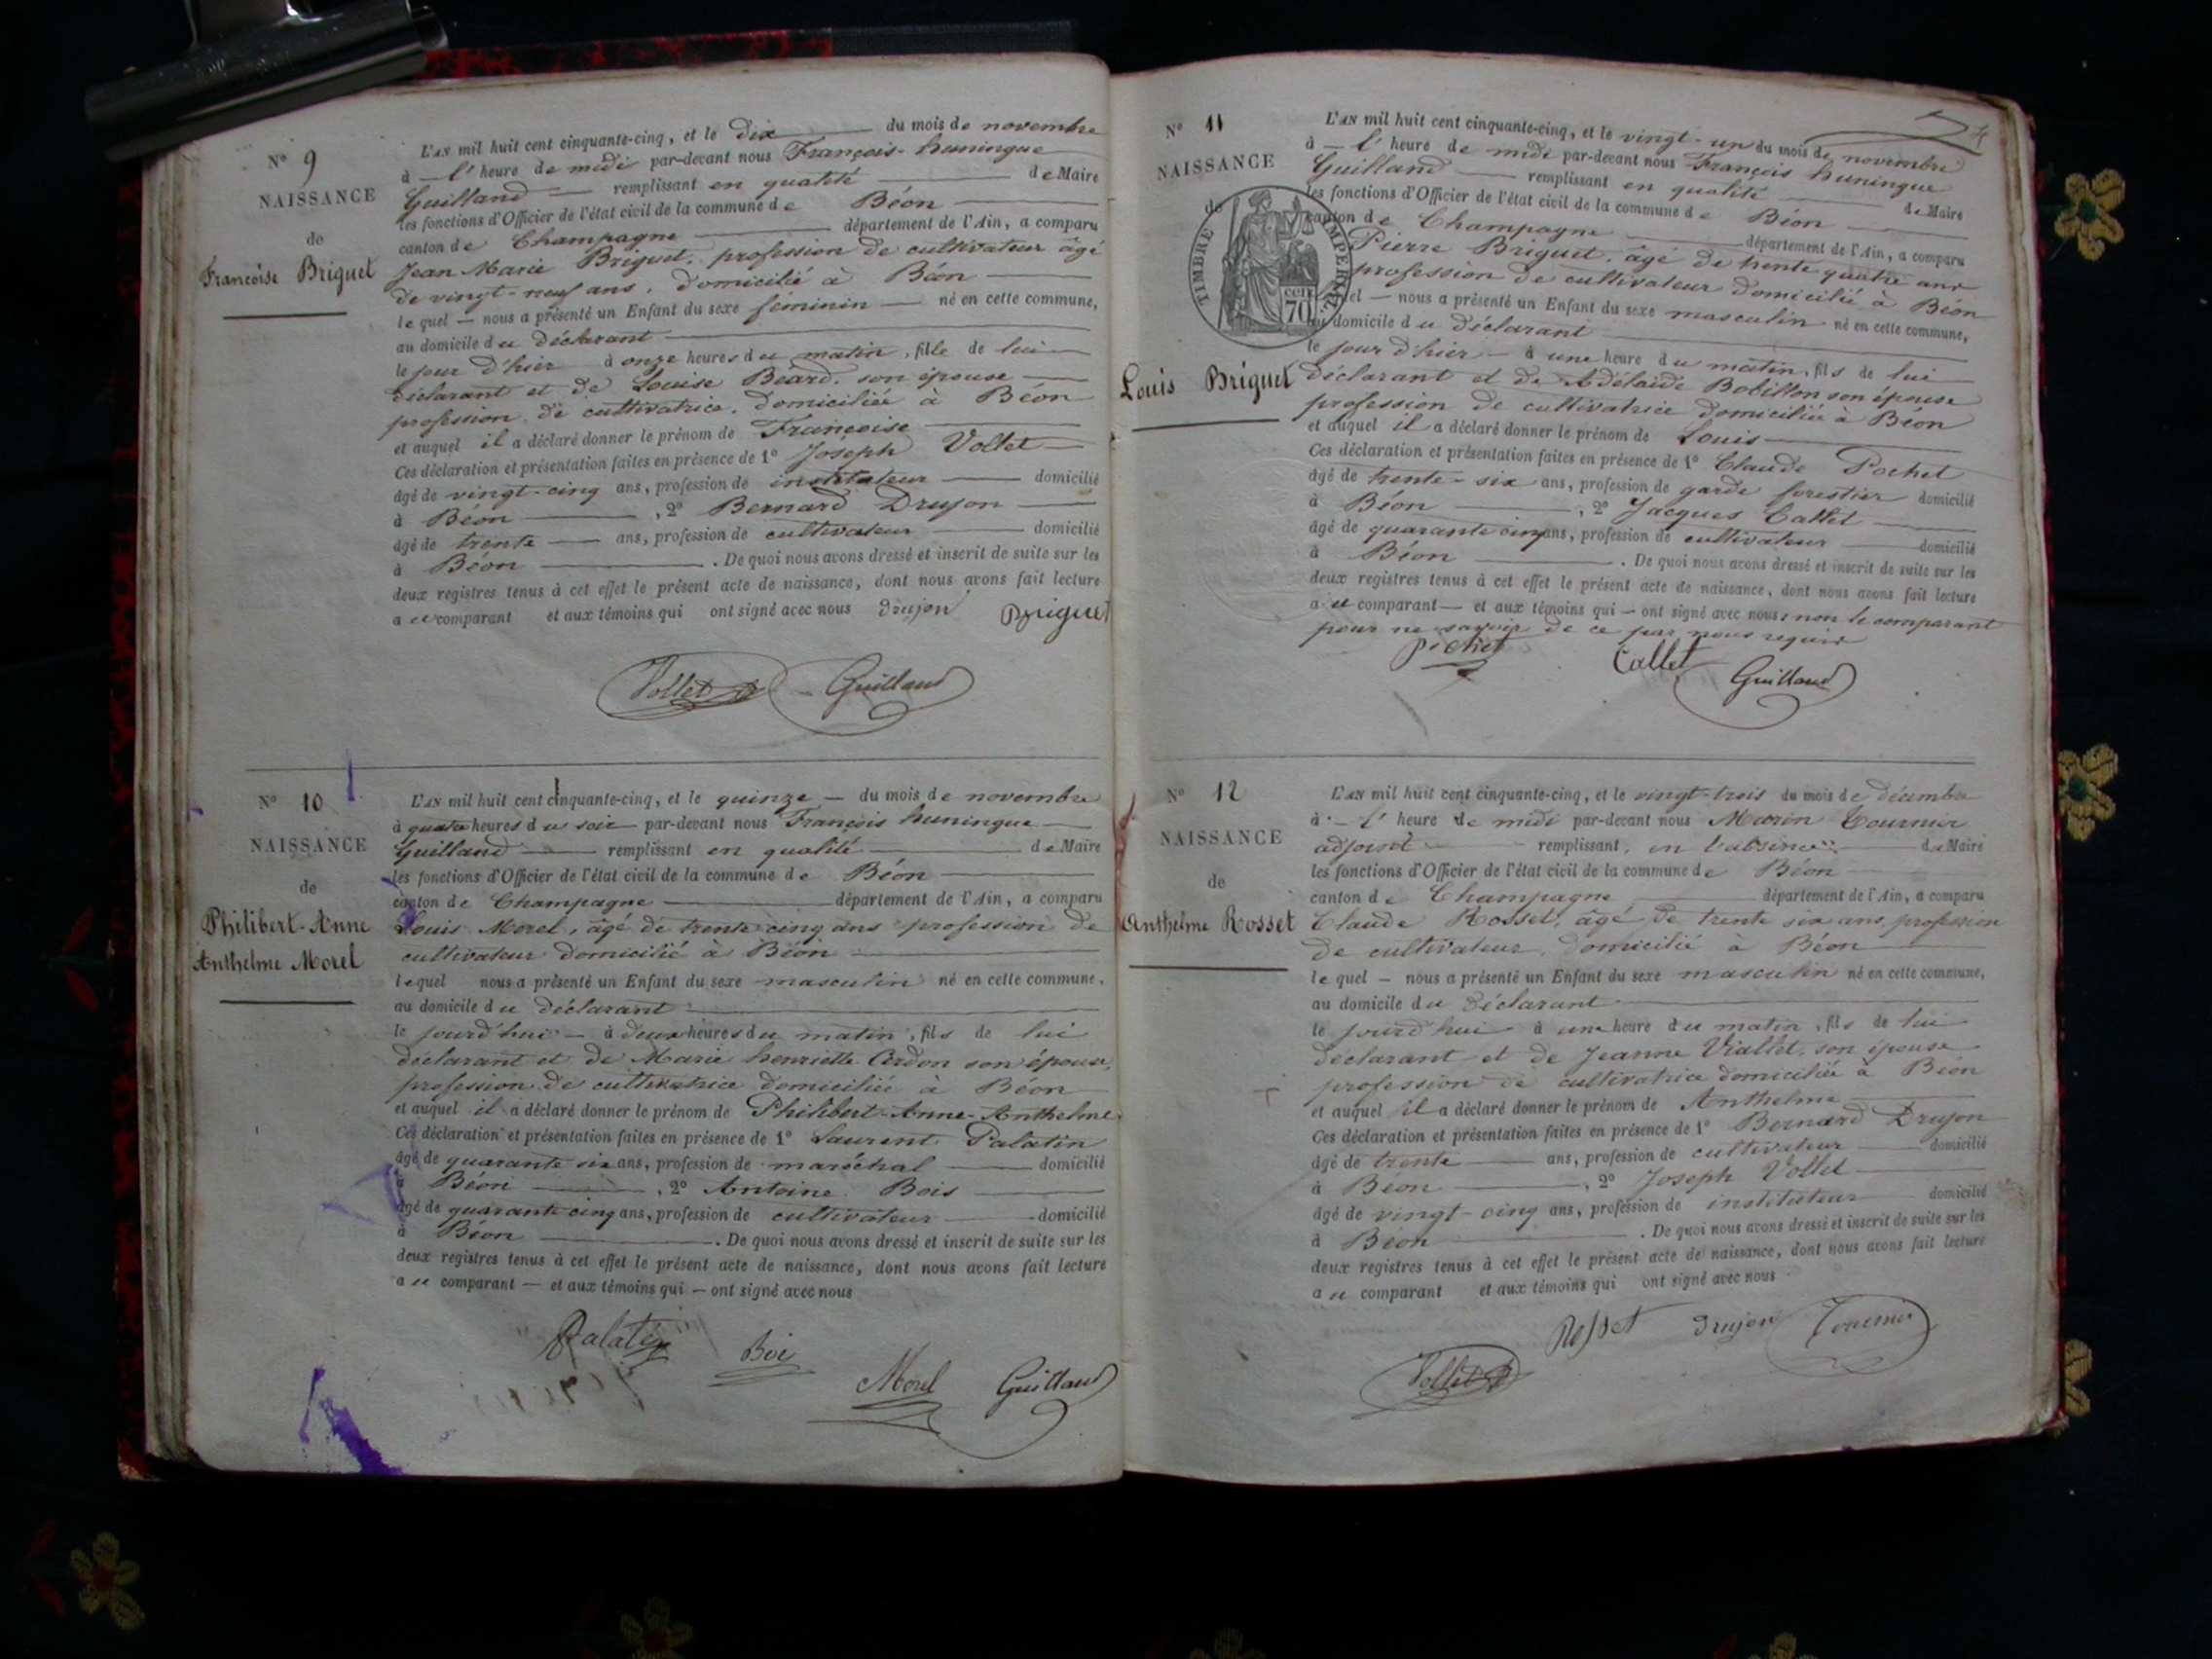 N° 9
NAISSANCE
de
Françoise Briguet
L'AN mil huit cent cinquante-cinq, et le dix du mois de novembre
à l'heure de midi par-devant nous François-huningue
Guilland remplissant en qualité de Maire
les fonctions d'Officier de l'état civil de la commune de Béon
canton de Champagne département de l'Ain, a comparu
Jean Marie Briguet, profession de cultivateur âgé
de vingt-neuf ans, domicilié à Béon
lequel — nous a présenté un Enfant du sexe féminin — né en cette commune,
au domicile du déclarant
le jour d'hier à onze heures du matin, fille de lui
déclarant et de Louise Béard, son épouse
profession de cultivatrice, domiciliée à Béon
et auquel il a déclaré donner le prénom de Françoise
Ces déclaration et présentation faites en présence de 1° Joseph Vollet
âgé de vingt-cinq ans, profession de instituteur domicilié
à Béon, 2° Bernard Drujon
âgé de trente ans, profession de cultivateur domicilié
à Béon. De quoi nous avons dressé et inscrit de suite sur les
deux registres tenus à cet effet le présent acte de naissance, dont nous avons fait lecture
au comparant et aux témoins qui ont signé avec nous Drujon Briguet
Vollet Guilland
N° 10
NAISSANCE
de
Philibert-Anne
Anthelme Morel
L'AN mil huit cent cinquante-cinq, et le quinze — du mois de novembre
à quatre heures du soir par-devant nous François huningue
Guilland remplissant en qualité de Maire
les fonctions d'Officier de l'état civil de la commune de Béon
canton de Champagne département de l'Ain, a comparu
Louis Morel, âgé de trente-cinq ans profession de
cultivateur domicilié à Béon
lequel nous a présenté un Enfant du sexe masculin né en cette commune,
au domicile du déclarant
le jourd'hui — à deux heures du matin, fils de lui
déclarant et de Marie henriette Cordon son épouse,
profession de cultivatrice domiciliée à Béon
et auquel il a déclaré donner le prénom de Philibert-Anne-Anthelme
Ces déclaration et présentation faites en présence de 1° Laurent Palatin
âgé de quarante six ans, profession de maréchal domicilié
à Béon, 2° Antoine Bois
âgé de quarante cinq ans, profession de cultivateur domicilié
à Béon. De quoi nous avons dressé et inscrit de suite sur les
deux registres tenus à cet effet le présent acte de naissance, dont nous avons fait lecture
au comparant — et aux témoins qui — ont signé avec nous
Palatin Boi
Morel Guilland
N° 11
NAISSANCE
TIMBRE IMPERIAL
de
cen. 70
Louis Briguet
L'AN mil huit cent cinquante-cinq, et le vingt-un du mois de novembre
à — l'heure de midi par-devant nous François huningue
Guilland remplissant en qualité de Maire
les fonctions d'Officier de l'état civil de la commune de Béon
canton de Champagne département de l'Ain, a comparu
Pierre Briguet, âgé de trente quatre ans
profession de cultivateur domicilié à Béon
lequel — nous a présenté un Enfant du sexe masculin né en cette commune,
au domicile du déclarant
le jour d'hier — à une heure du matin, fils de lui
déclarant et de Adélaïde Bobillon son épouse
profession de cultivatrice domiciliée à Béon
et auquel il a déclaré donner le prénom de Louis
Ces déclaration et présentation faites en présence de 1° Claude Pochet
âgé de trente-six ans, profession de garde forestier domicilié
à Béon, 2° Jacques Callet
âgé de quarante cinq ans, profession de cultivateur domicilié
à Béon. De quoi nous avons dressé et inscrit de suite sur les
deux registres tenus à cet effet le présent acte de naissance, dont nous avons fait lecture
au comparant — et aux témoins qui — ont signé avec nous, non le comparant
pour ne savoir de ce par nous requis
Pochet Callet Guilland
N° 12
NAISSANCE
de
Anthelme Rosset
L'AN mil huit cent cinquante-cinq, et le vingt-trois du mois de décembre
à — l'heure de midi par-devant nous Marin Tournier
adjoint remplissant, en l'absence de Maire
les fonctions d'Officier de l'état civil de la commune de Béon
canton de Champagne département de l'Ain, a comparu
Claude Rosset, âgé de trente six ans, profession
de cultivateur, domicilié à Béon
lequel — nous a présenté un Enfant du sexe masculin né en cette commune,
au domicile du déclarant
le jourd'hui à une heure du matin, fils de lui
déclarant et de Jeanne Viallet, son épouse
profession de cultivatrice domiciliée à Béon
et auquel il a déclaré donner le prénom de Anthelme
Ces déclaration et présentation faites en présence de 1° Bernard Drujon
âgé de trente ans, profession de cultivateur domicilié
à Béon, 2° Joseph Vollet
âgé de vingt-cinq ans, profession de instituteur domicilié
à Béon. De quoi nous avons dressé et inscrit de suite sur les
deux registres tenus à cet effet le présent acte de naissance, dont nous avons fait lecture
au comparant et aux témoins qui ont signé avec nous
Rosset Drujon Tournier
Vollet